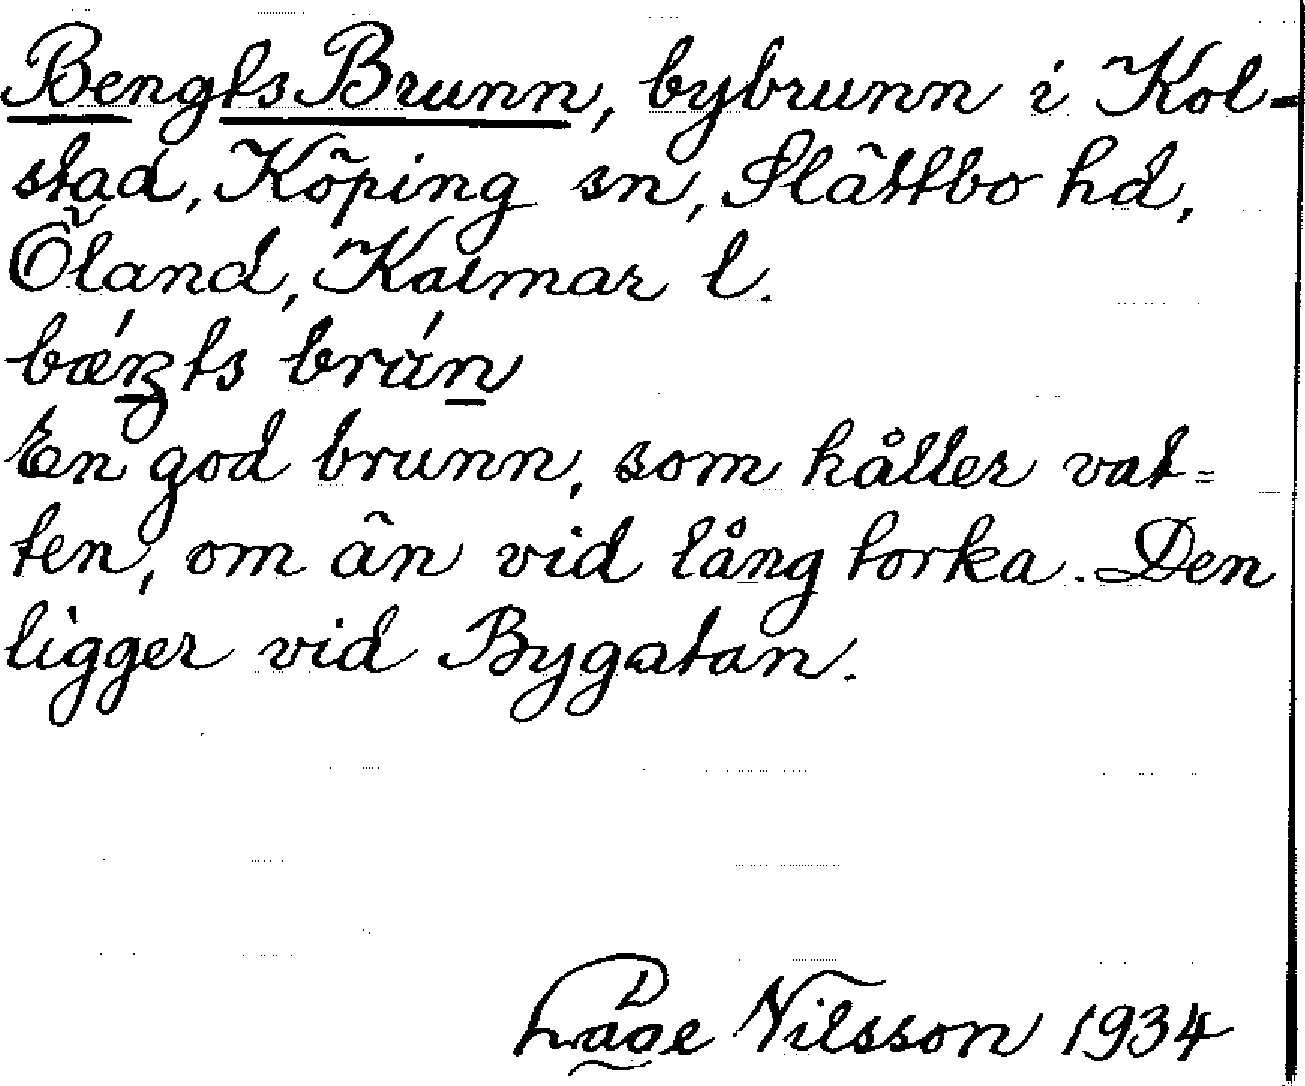 Bengts Brunn, bybrunn i Kol-
stad, Köping sn, Slättbo hd,
Öland, Kalmar l.
bǽŋts brún
En god brunn, som håller vat-
ten, om än vid lång torka. Den
ligger vid Bygatan.
Nilsson 1934